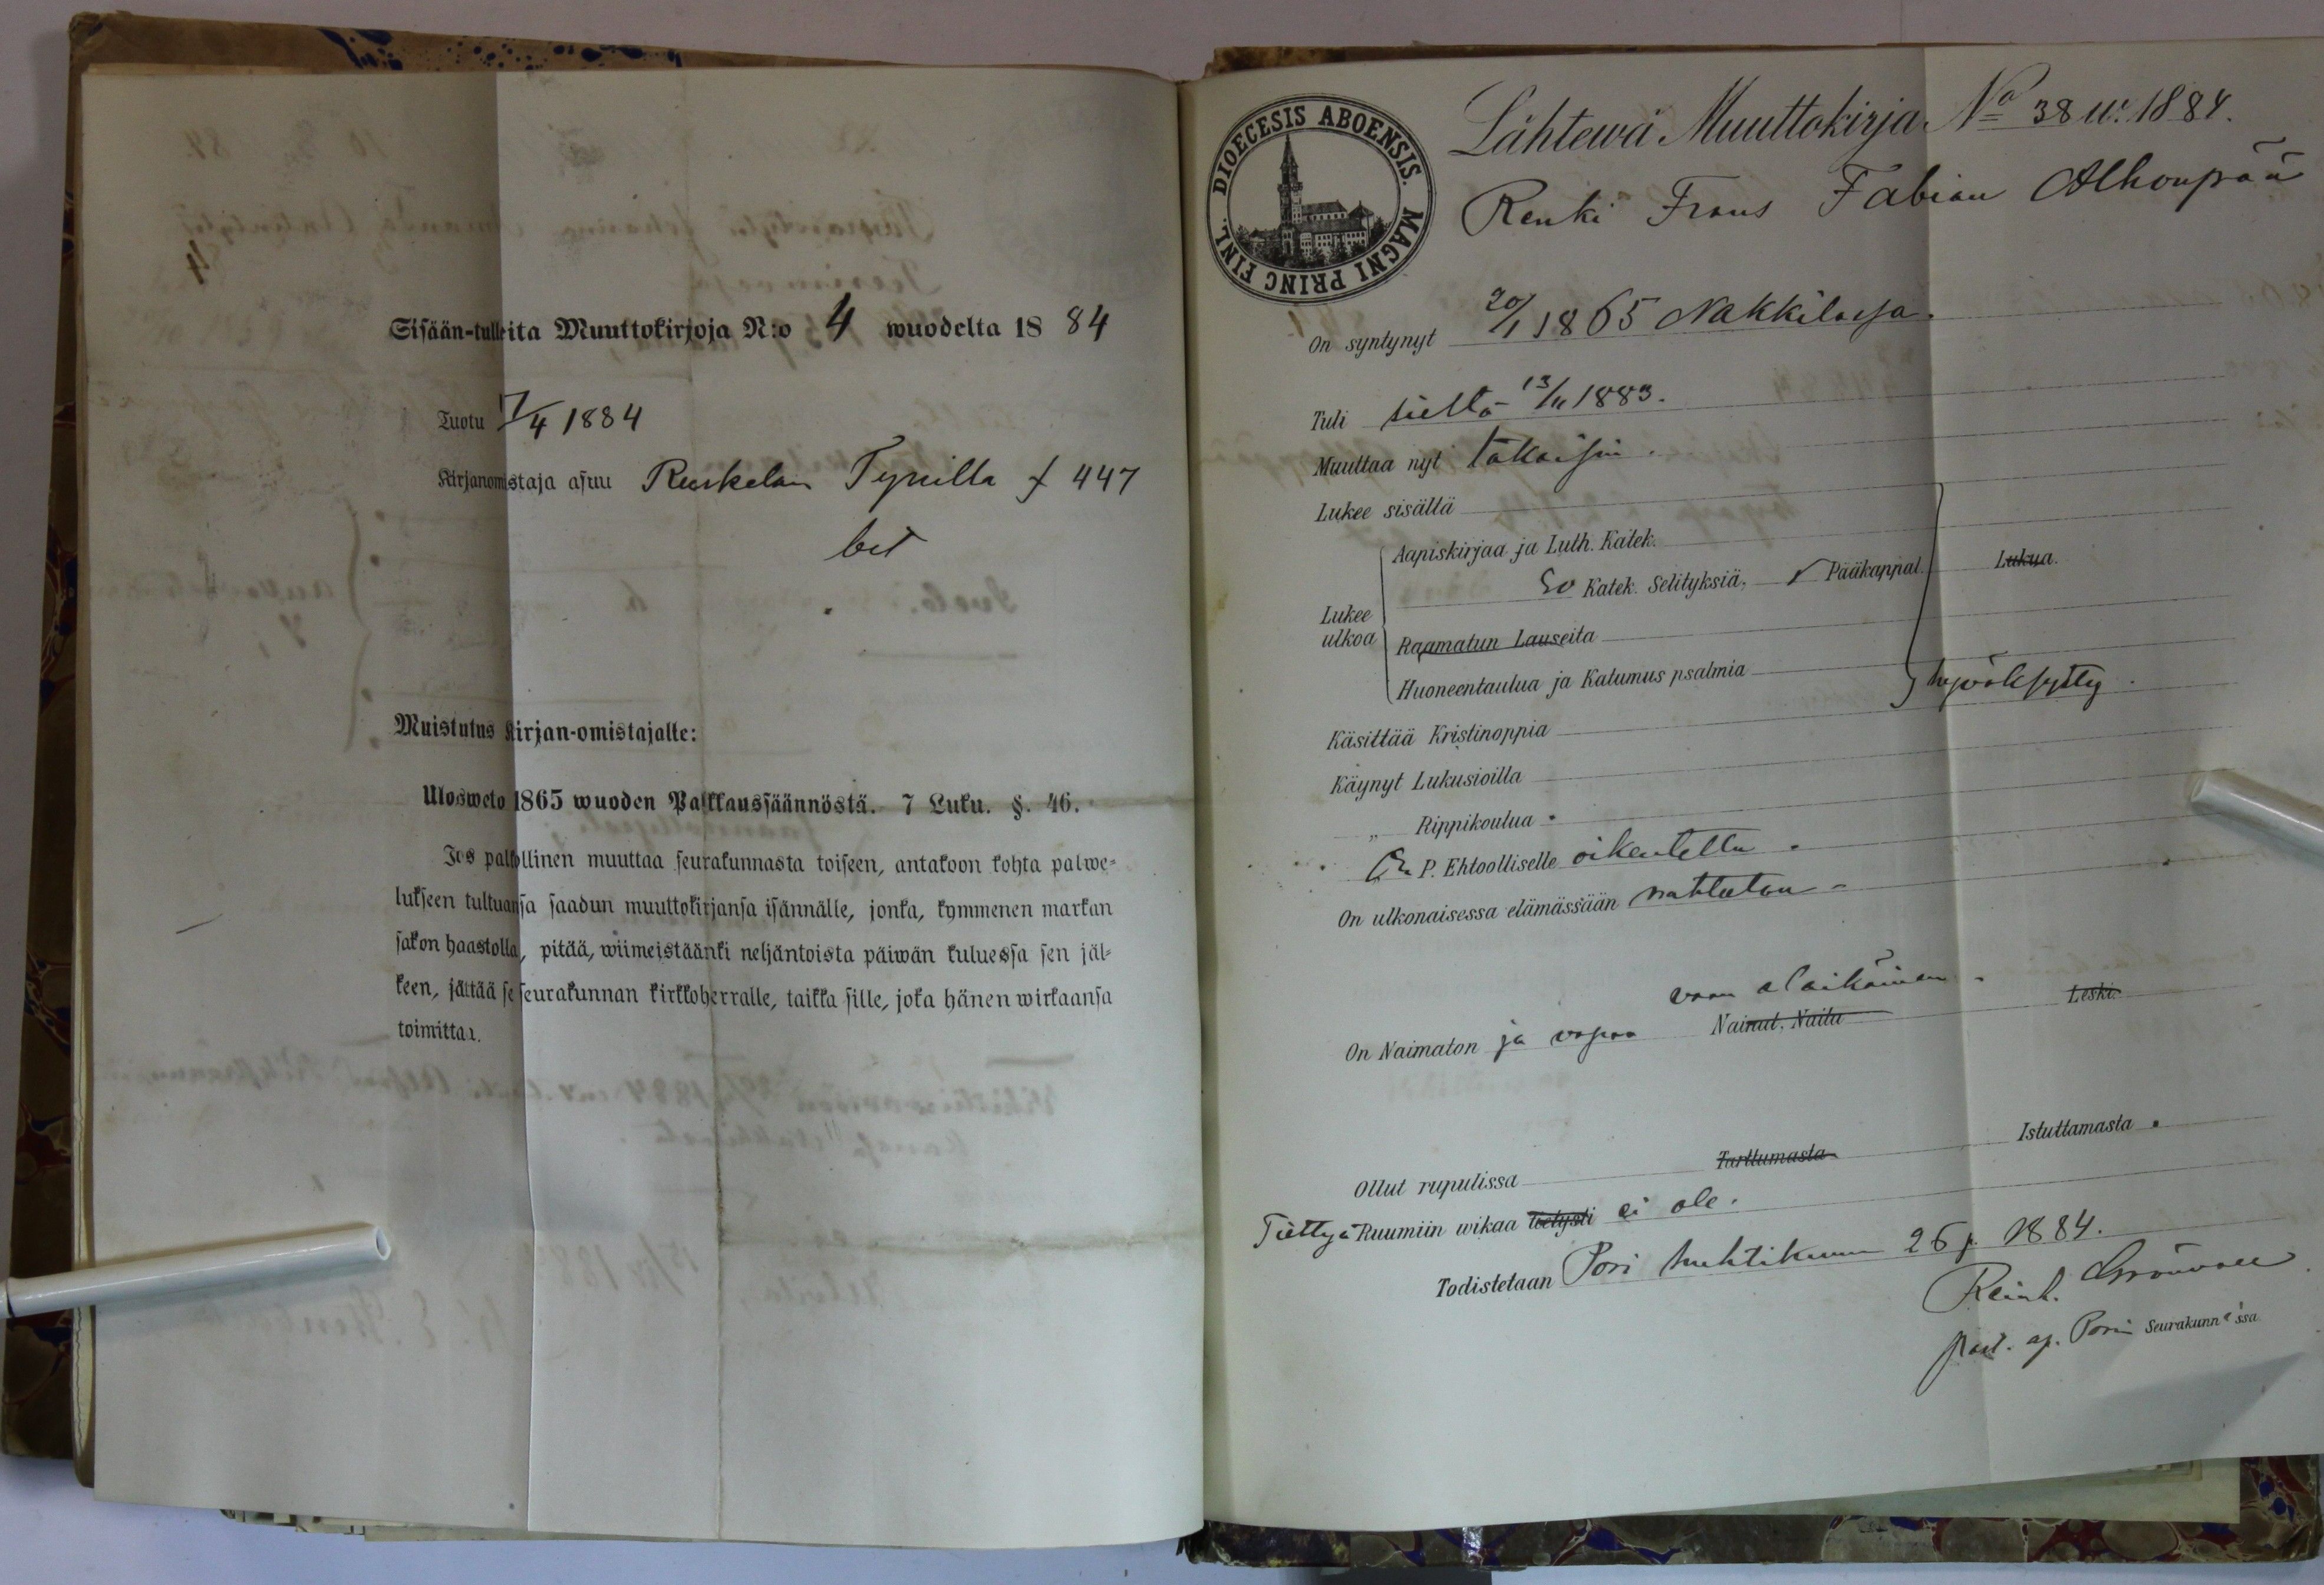 4
Sisään-tulleita Muuttokirjoja N:o 4 wuodelta 18 84
Tuotu 17/4 1884
Kirjanomistaja asuu Ruskelan Tynilla f 447
bet
Muistutus kirjan-omistajalle:
Ulosweto 1865 wuoden Palkkaussäännöstä. 7 Luku. §. 46.
Jos palkollinen muuttaa seurakunnasta toiseen, antakoon kohta palwe-
lukseen tultuansa saadun muuttokirjansa isännälle, jonka, kymmenen markan
sakon haastolla, pitää, wiimeistäänki neljäntoista päiwän kuluessa sen jäl-
keen, jättää se seurakunnan kirkkoherralle, taikka sille, joka hänen wirkaansa
toimittaa.
DIOECESIS ABOENSIS. MAGNI PRINC FINL.
Lähtewä Muuttokirja No 38 w. 1884.
Renki Frans Fabian Alhonpää
On syntynyt 20/1 1865 Nakkilassa.
Tuli sieltä 13/11 1883.
Muuttaa nyt takaisin.
Lukee sisältä
Aapiskirjaa ja Luth. Katek.
So Katek. Selityksiä, Pääkappal. Lukua.
Lukee
ulkoa
Raamatun Lauseita
Huoneentaulua ja Katumus psalmia hyväksytty.
Käsittää Kristinoppia
Käynyt Lukusioilla
„ Rippikoulua
On P. Ehtoolliselle oikeutettu.
On ulkonaisessa elämässään nuhteeton
vaan alaikäinen.
On Naimaton ja vapaa Nainut, Naitu Leski.
Ollut rupulissa Tarttumasta Istuttamasta
Tiettyä Ruumiin wikaa tietysti ei ole.
Todistetaan Pori huhtikuun 26 p. 1884.
Reinh. Grönvall
past. ap. Porin Seurakunn a'ssa